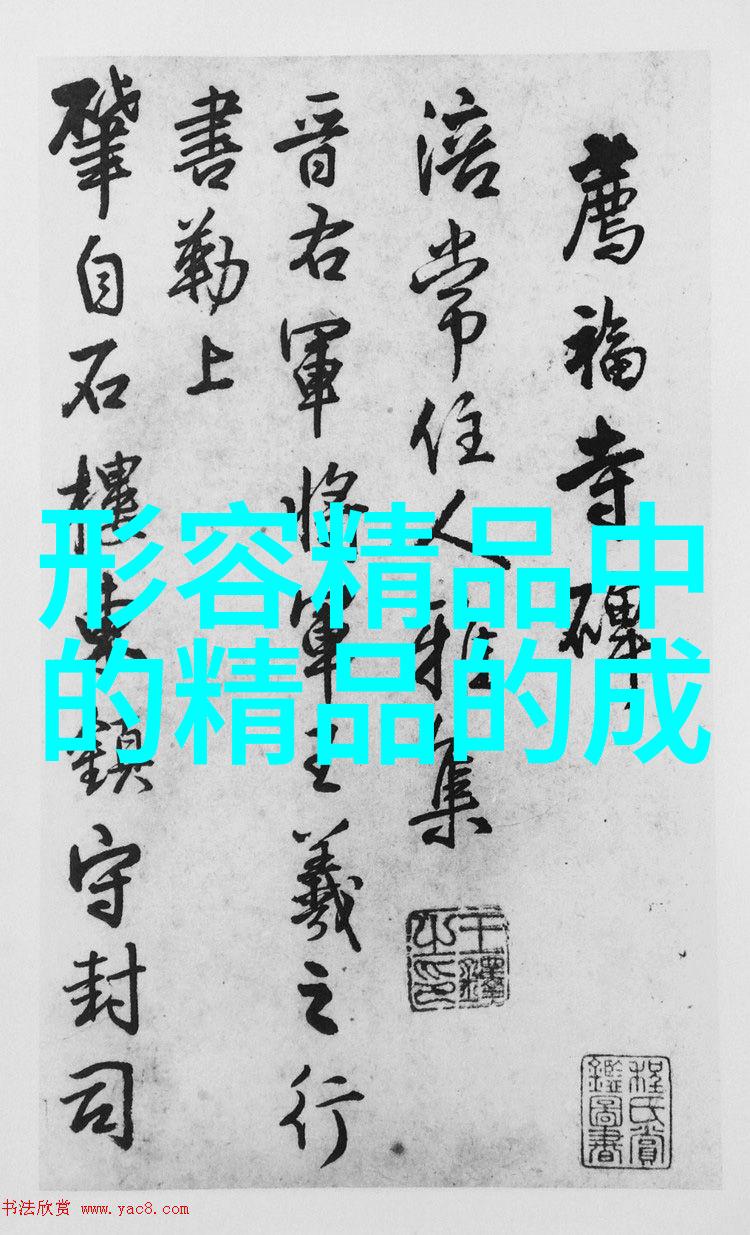 薦福寺碑
涪常住人雅集
王鐸之印
程氏賞鑑圖書
晉右軍將軍王羲之行
書勒上
肇自石樓東鎮守封司
形容精品中
的精品的成
书法欣赏 www.yac8.com